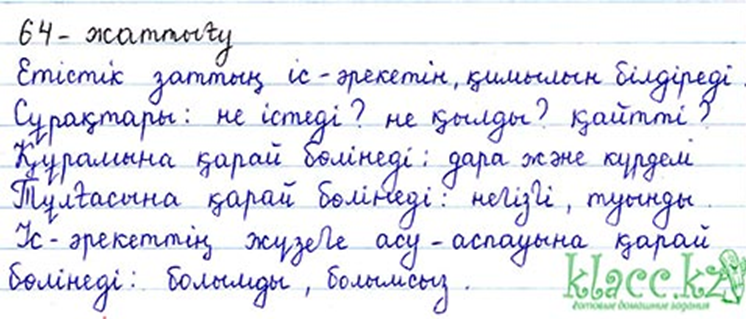 64 - жаттығу
Етістік заттың іс - әрекетін, қимылын білдіреді.
Сұрақтары: не істеді? не қылды? қайтті?
Құрамына қарай бөлінеді: дара және күрделі
Тұлғасына қарай бөлінеді: негізгі, туынды.
Іс - әрекеттің жүзеге асу - аспауына қарай
бөлінеді: болымды, болымсыз.
klacc.kz
готовые домашние задания